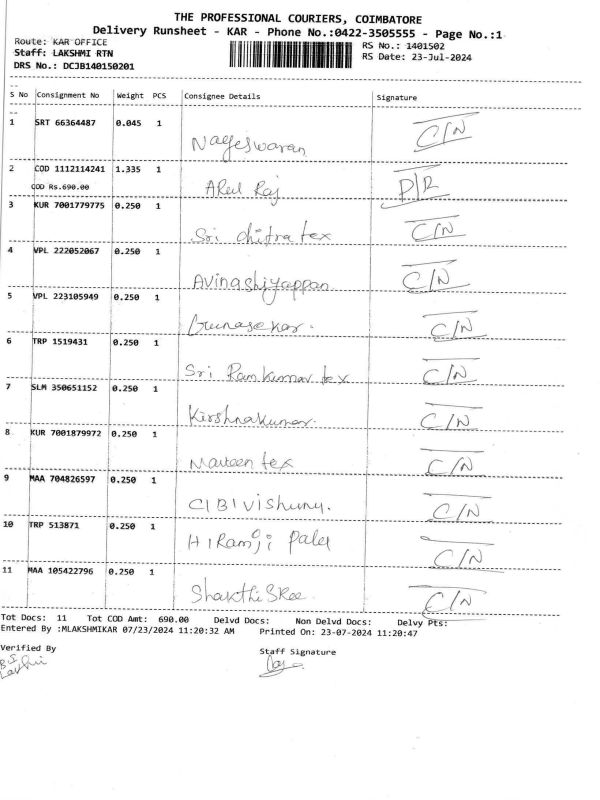 THE PROFESSIONAL COURIERS, COIMBATORE
Delivery Runsheet - KAR - Phone No.:0422-3505555 - Page No.:1
Route: KAR OFFICE RS No.: 1401502
Staff: LAKSHMI RTN RS Date: 23-Jul-2024
DRS No.: DCJB140150201
S No Consignment No Weight PCS Consignee Details Signature
1 SRT 66364487 0.045 1 Nageswaran C/N
2 COD 1112114241 1.335 1 ARul Raj D/R
COD Rs.690.00
3 KUR 7001779775 0.250 1 Sri chitra tex C/N
4 VPL 222052067 0.250 1 Avinashiyappan C/N
5 VPL 223105949 0.250 1 Gunasekar. C/N
6 TRP 1519431 0.250 1 Sri Ramkumar tex C/N
7 SLM 350651152 0.250 1 Kirshnakumar. C/N
8 KUR 7001879972 0.250 1 Naveen tex C/N
9 MAA 704826597 0.250 1 CIBI Vishnu. C/N
10 TRP 513871 0.250 1 HIRamji Patel C/N
11 MAA 105422796 0.250 1 Shakthi SRee. C/N
Tot Docs: 11 Tot COD Amt: 690.00 Delvd Docs: Non Delvd Docs: Delvy Pts:
Entered By :MLAKSHMIKAR 07/23/2024 11:20:32 AM Printed On: 23-07-2024 11:20:47
Verified By Staff Signature